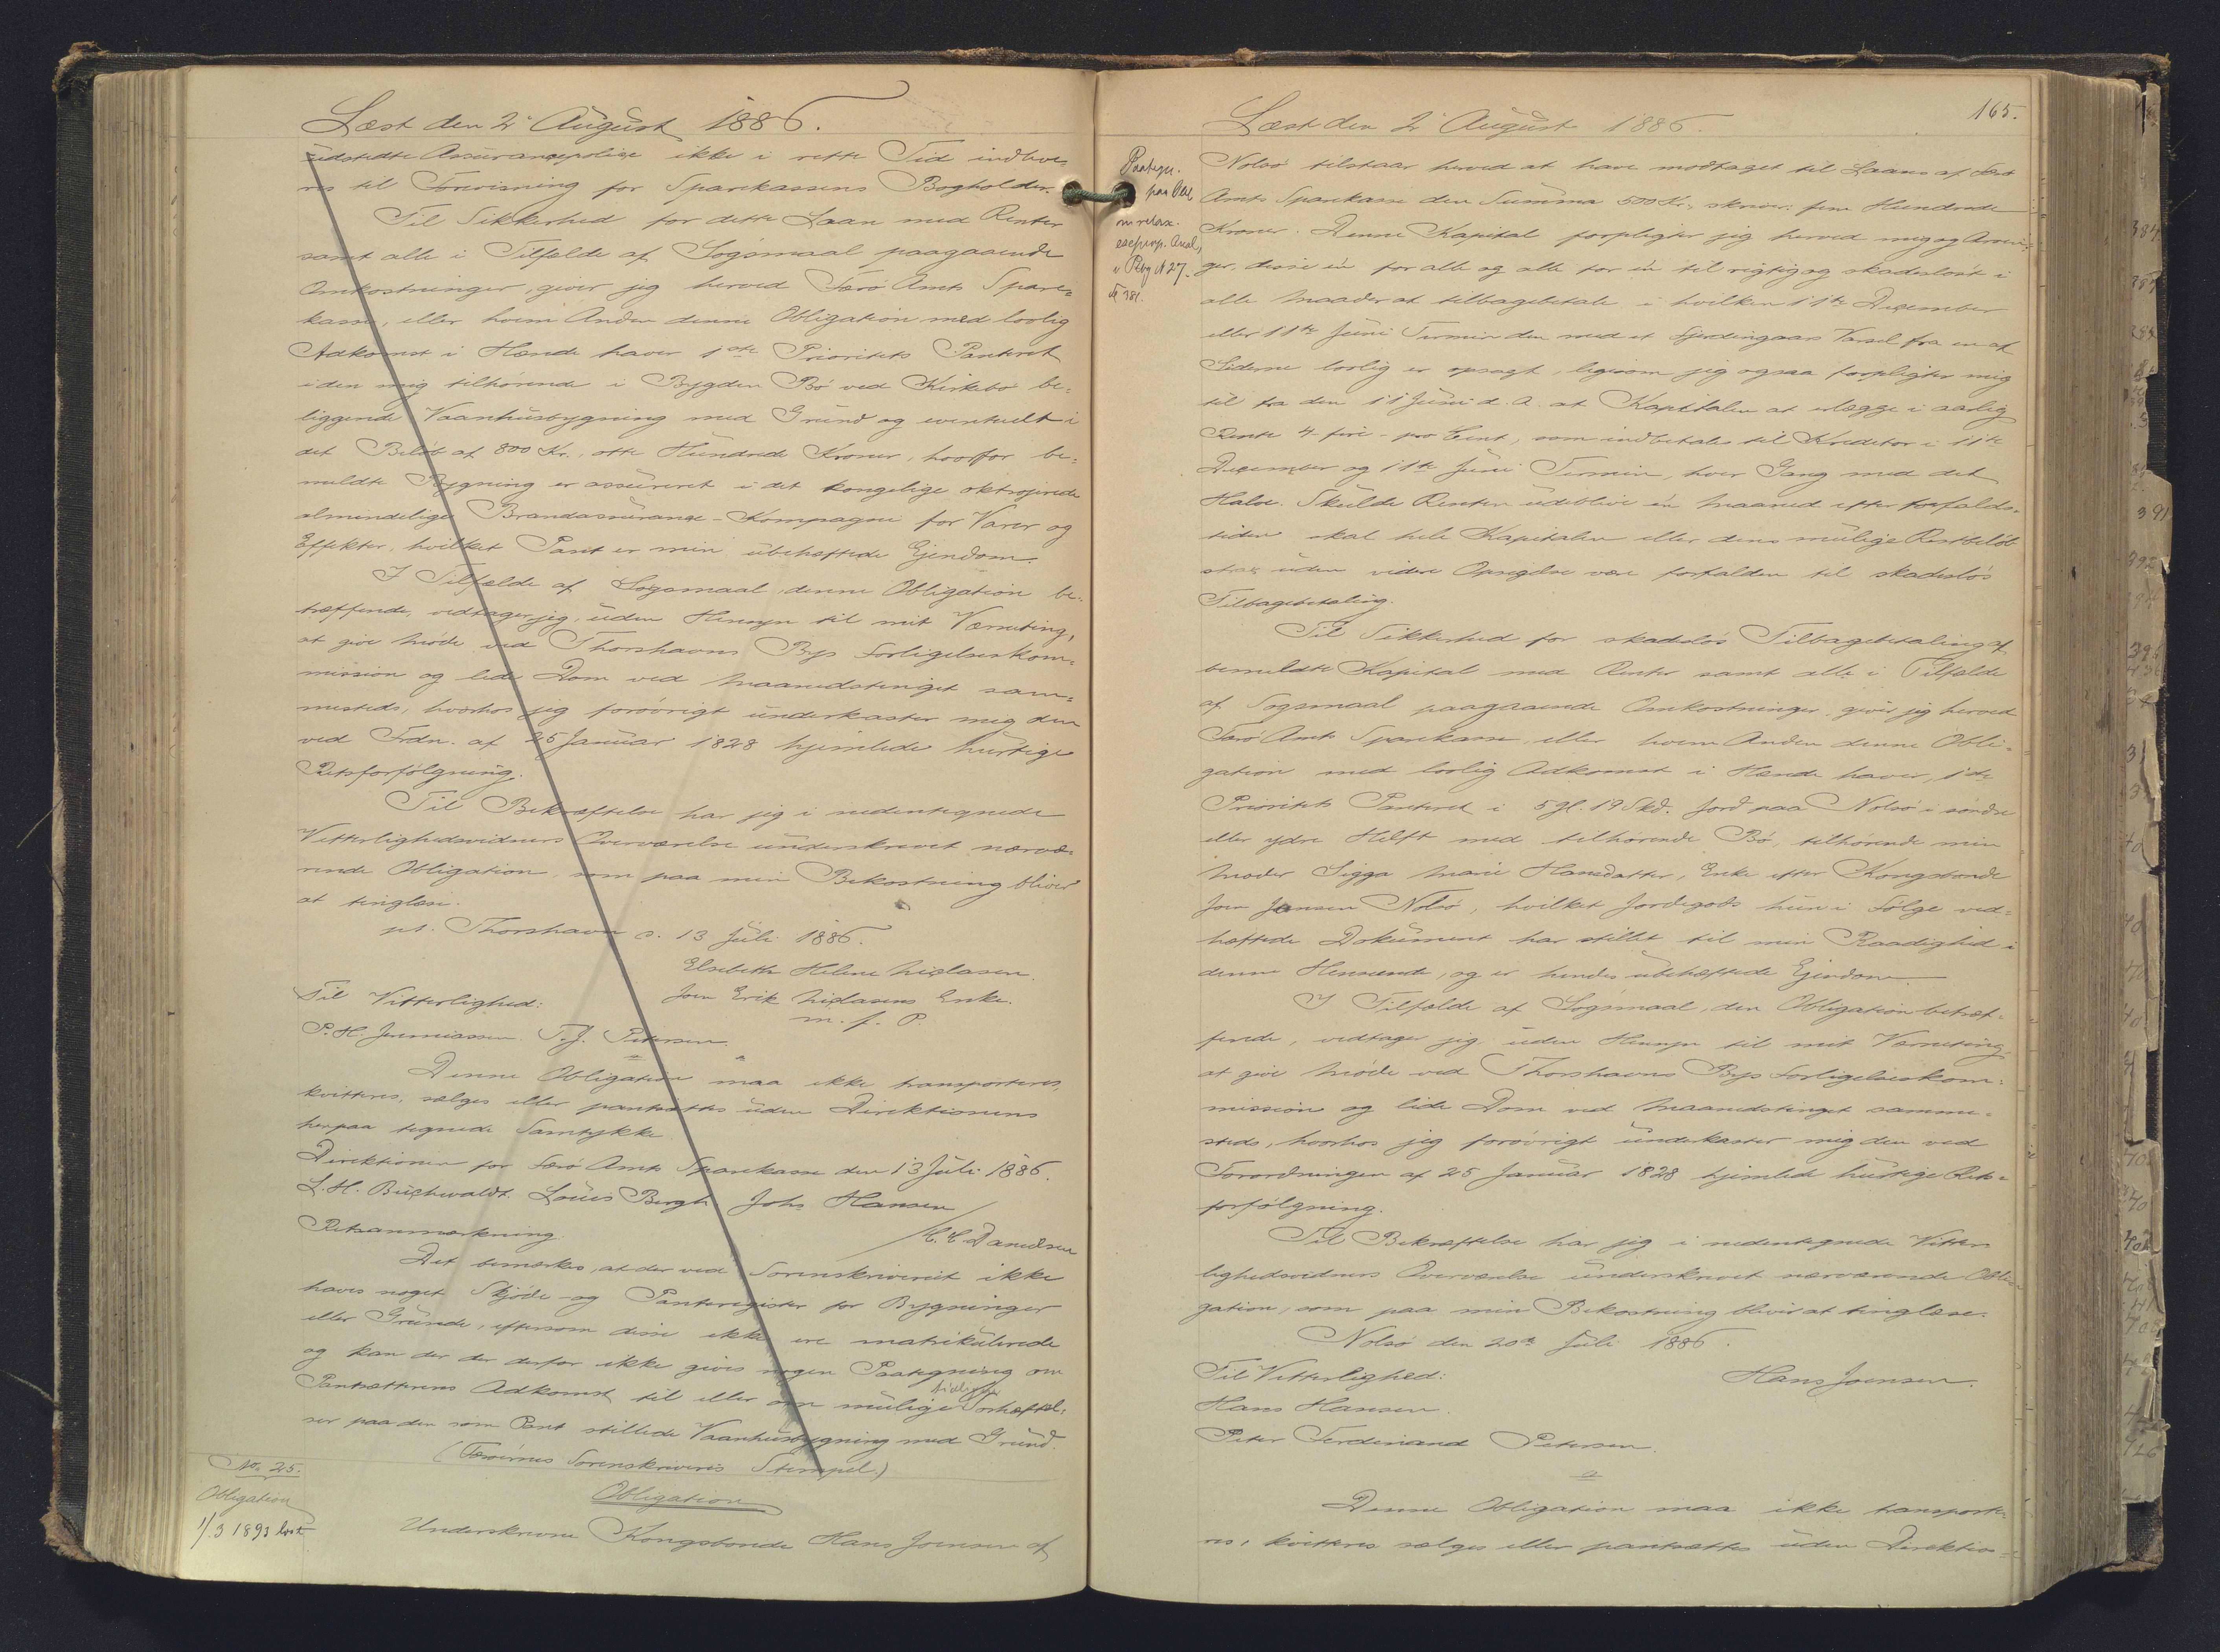 Læst den 2' August 1886.
udstedte Assurancepolice ikke i rette Tid indleve-
res til Forevisning for Sparekassens Bogholder.
Til Sikkerhed for dette Laan med Renter
samt alle i Tilfælde af Søgsmaal paagaaende
Omkostninger, giver jeg herved Færø Amts Spare-
kasse, eller hvem Anden denne Obligation med lovlig
Adkomst i Hænde haver 1ste Prioritets Panteret
i den mig tilhørende i Bygden Bø ved Kirkebø be-
liggende Vaanhusbygning med Grund og eventuelt i
det Beløb af 800 Kr., otte Hundrede Kroner, hvorfor be-
meldte Bygning er assureret i det kongelige oktrojerede
almindelige Brandassurance-Kompagni for Varer og
Effekter, hvilket Pant er min ubehæftede Ejendom.
I Tilfælde af Søgsmaal, denne Obligation be-
træffende, vedtager jeg, uden Hensyn til mit Værneting,
at give Møde ved Thorshavns Byes Forligelseskom-
mission og lide Dom ved Maanedstinget sam-
mesteds, hvorhos jeg forøvrigt underkaster mig den
ved Frdn. af 25 Januar 1828 hjemlede hurtige
Retsforfølgning.
Til Bekræftelse har jeg i nedentegnede
Vitterlighedsvidners Overværelse underskrevet nærvæ-
rende Obligation, som paa min Bekostning bliver
at tinglæse.
pt. Thorshavn d. 13 Juli 1886.
Elsebeth Helene Niclasen.
Joen Erik Niclasens Enke.
m. f. P.
Til Vitterlighed:
P. H. Jeremiassen. T. J. Petersen.
Denne Obligation maa ikke transporteres,
kvitteres, sælges eller pantsættes uden Direktionens
herpaa tegnede Samtykke.
Direktionen for Færø Amts Sparekasse den 13 Juli 1886.
L. H. Buchwaldt. Louis Bergh Johs Hansen
/C. C. Danielsen
Retsanmærkning.
Det bemærkes, at der ved Sorenskriveriet ikke
haves noget Skjøde- og Panteregister for Bygninger
eller Grunde, eftersom disse ikke ere matrikulerede
og kan der der derfor ikke gives nogen Paategning om
Pantsætterens Adkomst til eller om mulige tidligere Forhæftel-
ser paa den som Pant stillede Vaanhusbygning med Grund.
(Færøernes Sorenskriveris Stempel.)
No. 25.
Obligation
1/3 1893 læst
Obligation
Underskrevne Kongsbonde Hans Joensen af
165.
Læst den 2' August 1886.
Paategn.
paa Obl.
om relax.
i Pbg N 27
381.
Nolsø tilstaar herved at have modtaget til Laans af Færø
Amts Sparekasse den Summa 500 Kr., skriver fem Hundrede
Kroner. Denne Kapital forpligter jeg herved mig og Arvin-
ger, disse én for alle og alle for én til rigtig og skadesløst i
alle Maader at tilbagebetale i hvilken 11te December
eller 11te Juni Termin den med et Fjerdingaars Varsel fra en af
Siderne lovlig er opsagt, ligesom jeg ogsaa forpligter mig
til fra den 11 Juni d. A. at Kapitalen at erlægge i aarlig
Rente 4 - fire - pro Cent, som indbetales til Kreditor i 11te
December og 11te Juni Termin, hver Gang med det
Halve. Skulde Renten udeblive én Maaned efter Forfalds-
tiden skal hele Kapitalen eller dens mulige Restbeløb
uden videre Opsigelse være forfalden til skadesløs
Tilbagebetaling.
Til Sikkerhed for skadesløs Tilbagebetaling af
bemeldte Kapital med Renter samt alle i Tilfælde
af Søgsmaal paagaaende Omkostninger, giver jeg herved
Færø Amts Sparekasse, eller hvem Anden denne Obli-
gation med lovlig Adkomst i Hænde haver, 1ste
Prioritets Panteret i 5 gl. 19 Skd. Jord paa Nolsø i søndre
eller ydre Helft med tilhørende Bø, tilhørende min
Moder Sigga Marie Hansdatter, Enke efter Kongsbonde
Joen Joensen Nolsø, hvilket Jordegods hun i Følge ved-
hæftede Dokument har stillet til min Raadighed i
denne Henseende, og er hendes ubehæftede Ejendom.
I Tilfælde af Søgsmaal, den Obligation betræf-
fende, vedtager jeg uden Hensyn til mit Værneting
at give Møde ved Thorshavns Byes Forligelseskom-
mission og lide Dom ved Maanedstinget samme-
steds, hvorhos jeg forøvrigt underkaster mig den ved
Forordningen af 25 Januar 1828 hjemlede hurtige Rets-
forfølgning.
Til Bekræftelse har jeg i nedentegnede Vitter-
lighedsvidners Overværelse underskrevet nærværende Obli-
gation, som paa min Bekostning bliver at tinglæse.
Nolsø den 20de Juli 1886.
Til Vitterlighed:
Hans Joensen.
Hans Hansen.
Peter Ferdinand Petersen.
Denne Obligation maa ikke transporte-
res, kvitteres sælges eller pantsættes uden Direktio-